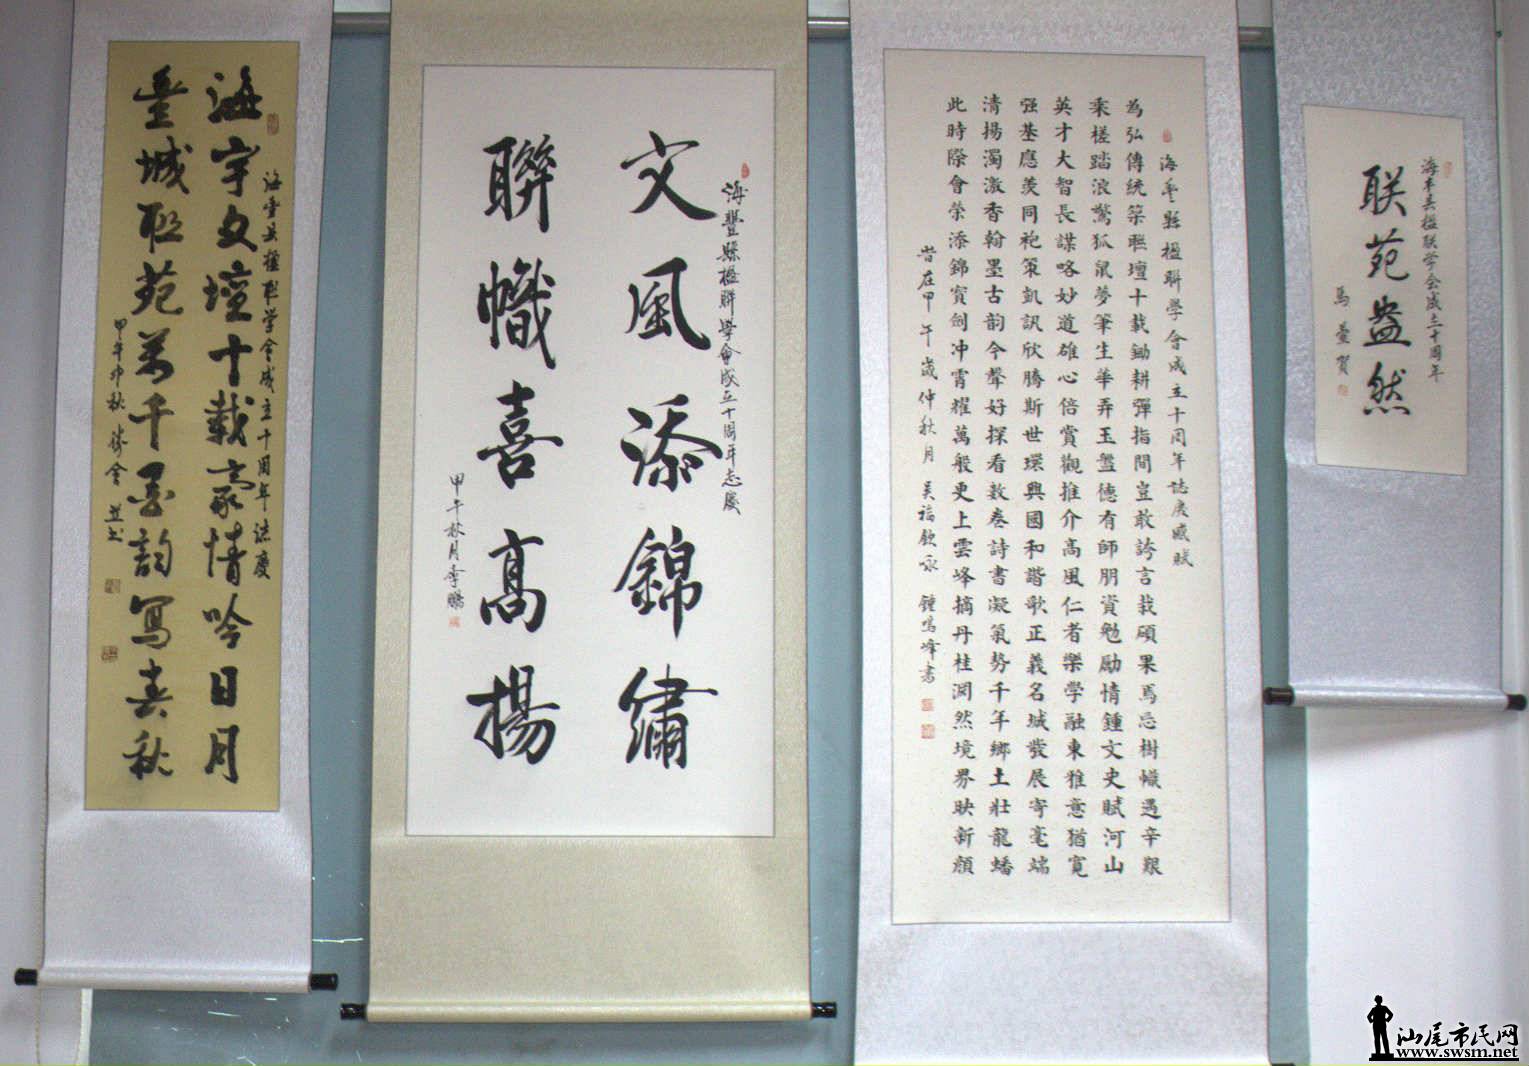 海丰县楹联学会成立十周年
联苑盎然
賀
海豐縣楹聯學會成立十周年誌庆感賦
為弘傳統築聯壇十載鋤耕彈指間豈敢誇言栽碩果焉忘樹幟遇辛艱
乘槎踏浪驚狐鼠夢筆生華弄玉盤德有師朋資勉勵情鍾文史賦河山
英才大智長謀略妙道雄心倍賞觀推介高風仁者樂学融東雅意猶寬
强基應羨同袍策凱訊欣騰斯世環興國和諧歌正義名城發展寄毫端
清揚濁激香翰墨古韵今聲好探看数卷詩書凝氣勢千年鄉土壯龍蟠
此時際會榮添錦寳劍冲霄耀萬般更上雲峰摘丹桂渊然境界映新顏
旹在甲午歲仲秋月 吴福欽咏 鍾鳴峰書
海豐縣楹聯學會成立十周年志慶
文風添錦繡
聯幟喜高揚
甲午秋月李鵬
海豐县楹联学会成立十周年誌慶
海宇文壇十載豪情吟日月
豐城联苑万千墨韵写春秋
甲午仲秋 並书
汕尾市民网
www.swsm.net